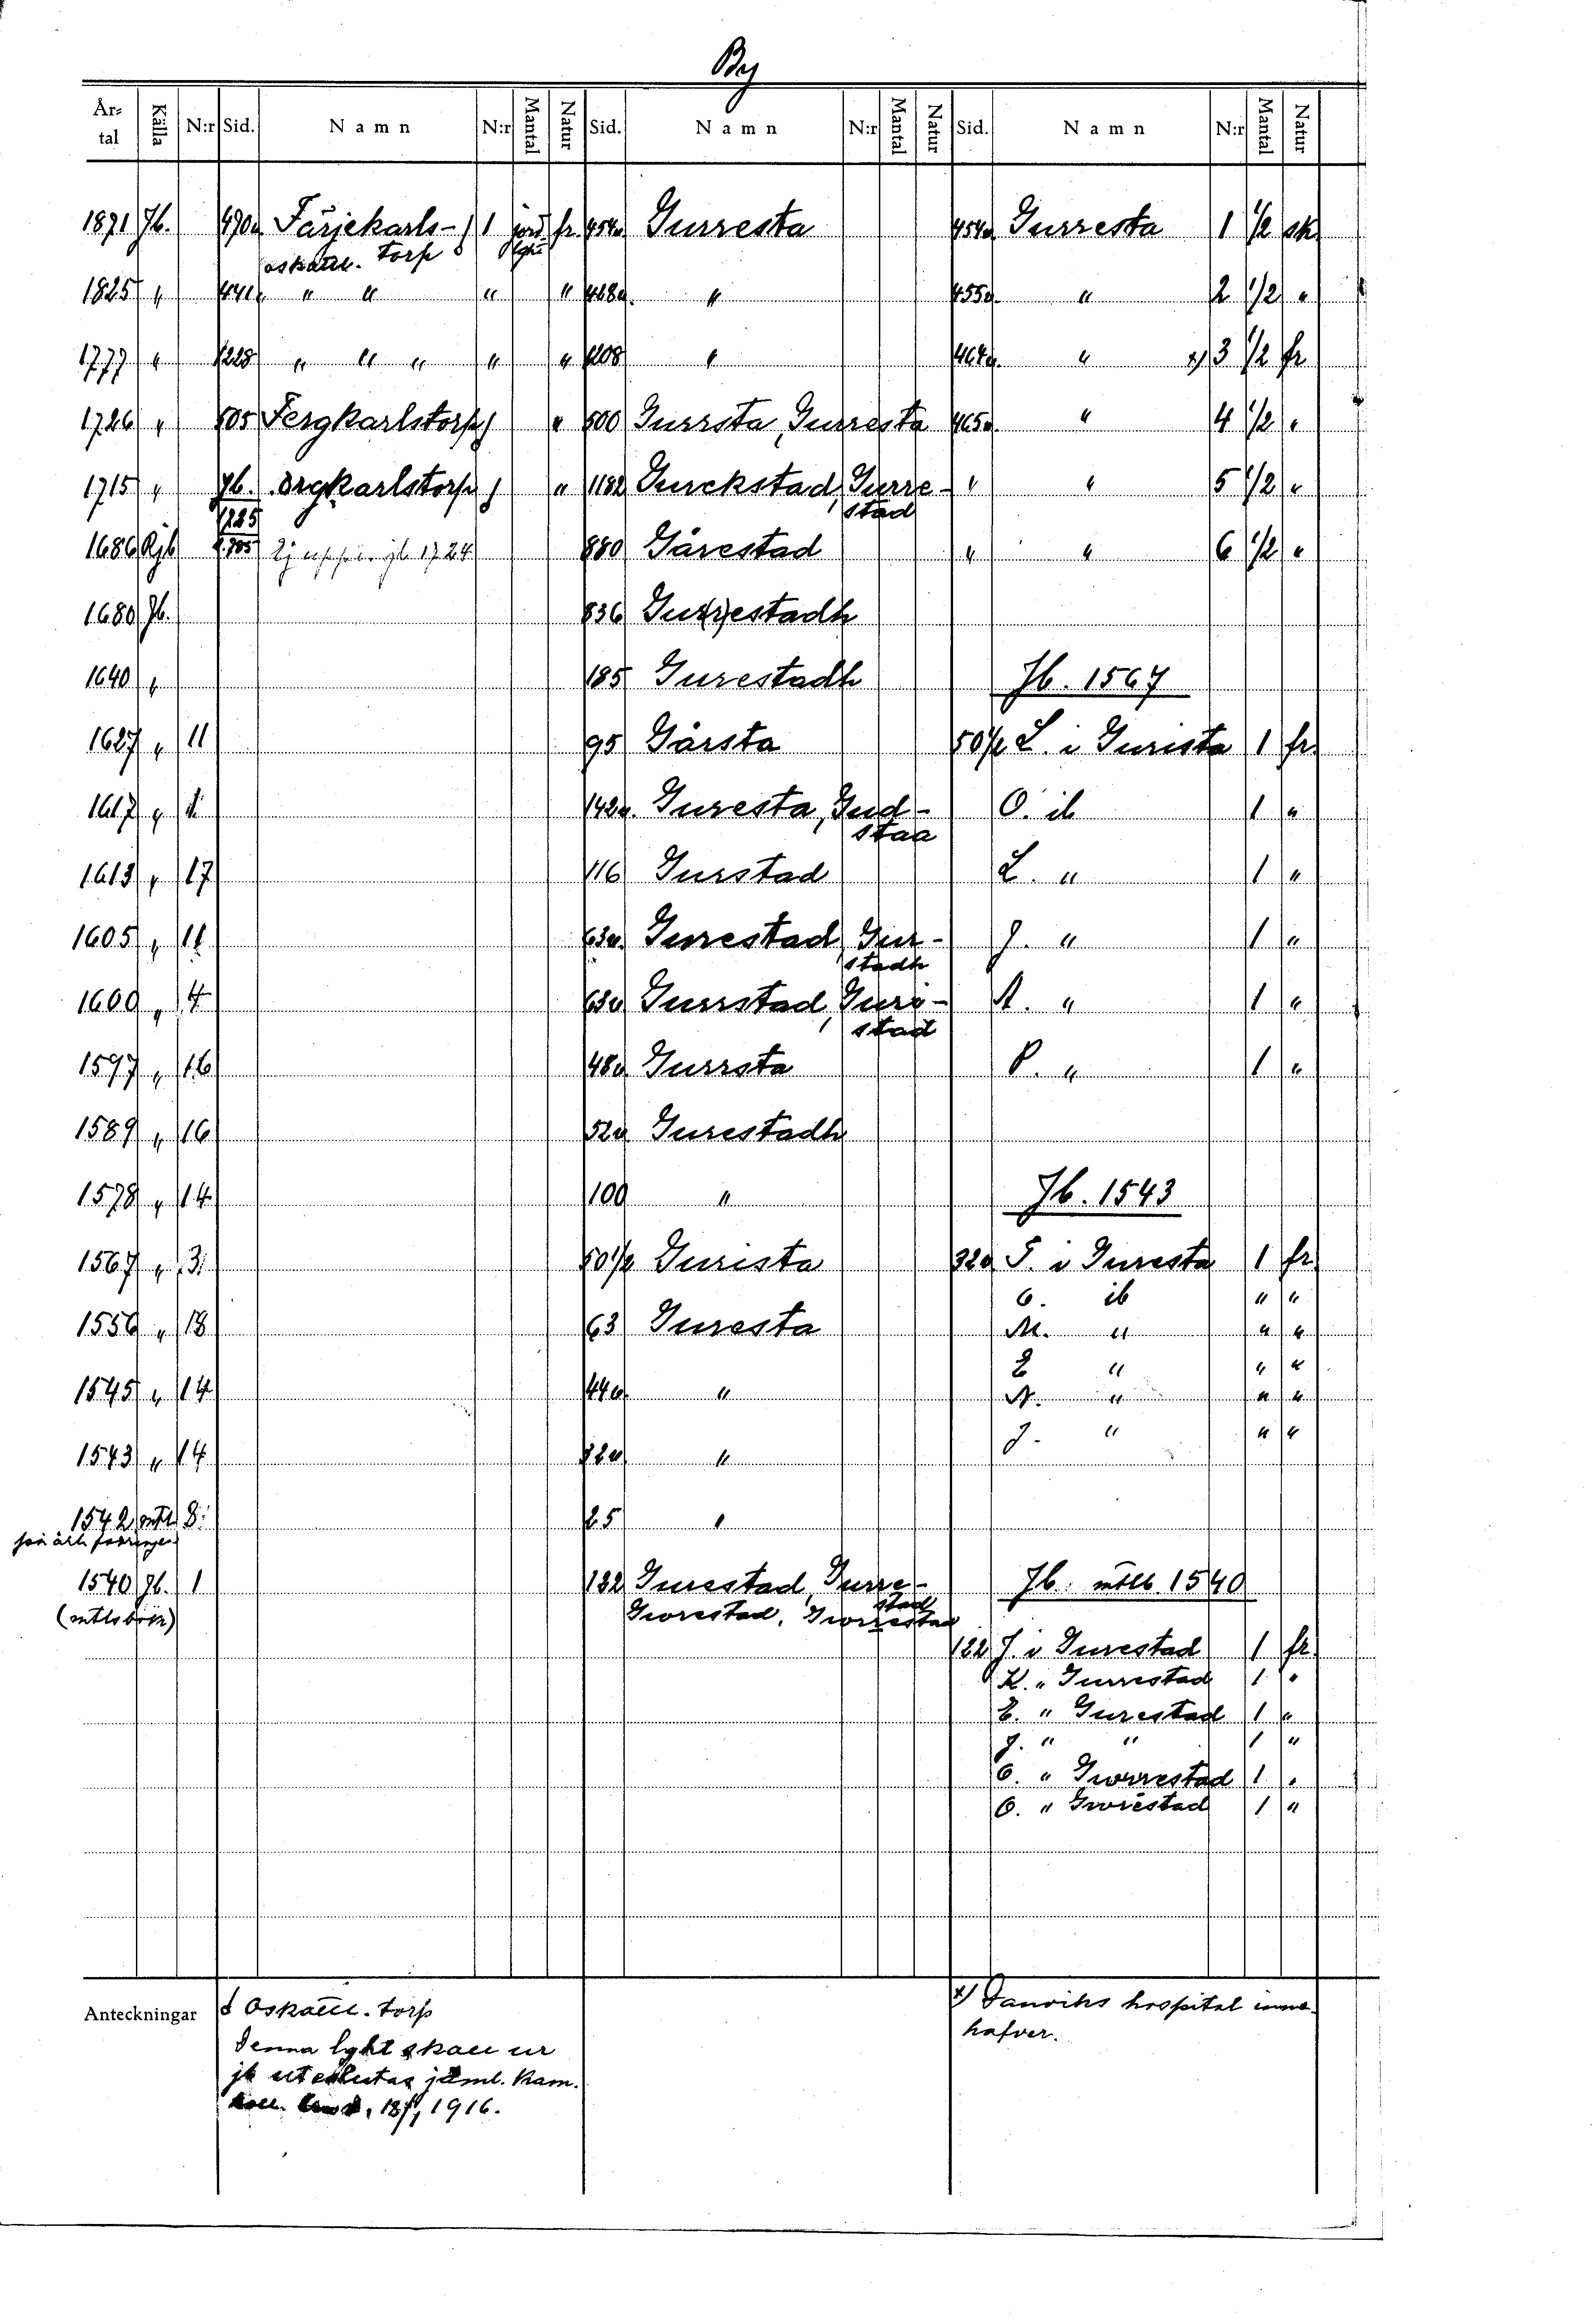 By
År-tal Källa N:r Sid. Namn N:r Mantal Natur Sid. Namn N:r Mantal Natur Sid. Namn N:r Mantal Natur
1871 Jb. 490a Färjekarls- 1 jord fr. 454a Gurresta 454a Gurresta 1 1/2 sk
oskattl. torp lght
1825 " 441a " " " " 468a " 455a " 2 1/2 "
1777 " 1228 " " " " " 1208 " 464a " x) 3 1/2 fr
1726 " 505 Fergkarlstorp " 500 Gurrsta, Gurresta 465a " 4 1/2 "
1715 " Jb. Örgkarlstorp " 1182 Gurckstad, Gurre- " " 5 1/2 "
1725 stad
1686 Rjb s. 705 Ej upp i jb 1724 880 Gårestad " " 6 1/2 "
1680 Jb. 836 Gu(r)restadh
1640 " 185 Gurestadh Jb. 1567
1627 " 11 95 Gårsta 50 1/2 L. i Gurista 1 fr.
1617 " 11 142a. Guresta, Gud- O. ib 1 "
staa
1613 " 17 116 Gurstad L. " 1 "
1605 " 11 63a. Gurestad, Gur- J. " 1 "
stadh
1600 " 4 63a Gurrstad, Guri- A. " 1 "
stad
1597 " 16 48a Gurrsta P. " 1 "
1589 " 16 52a Gurestadh
1578 " 14 100 " Jb. 1543
1567 " 3 50 1/2 Gurista 32a T. i Guresta 1 fr.
O. ib " "
1556 " 18 63 Guresta M. " " "
E " " "
1545 " 14 44a " N. " " "
J. " " "
1543 " 14 32a "
1542 mtl 8 25 "
1540 Jb. 1 122 Gurestad, Gurre- Jb. mtlb. 1540
(mtlsbok) stad
Gworestad, Gworrestad
122 J. i Gurestad 1 fr.
K. " Gurrestad 1 "
E. " Gurestad 1 "
J. " " 1 "
O. " Gworrestad 1 "
O. " Gworestad 1 "
Anteckningar
Oskattl. torp
Denna lght skall ur
jb uteslutas jäml. Kam.
koll. 1916.
x) Danviks hospital inne-
hafver.